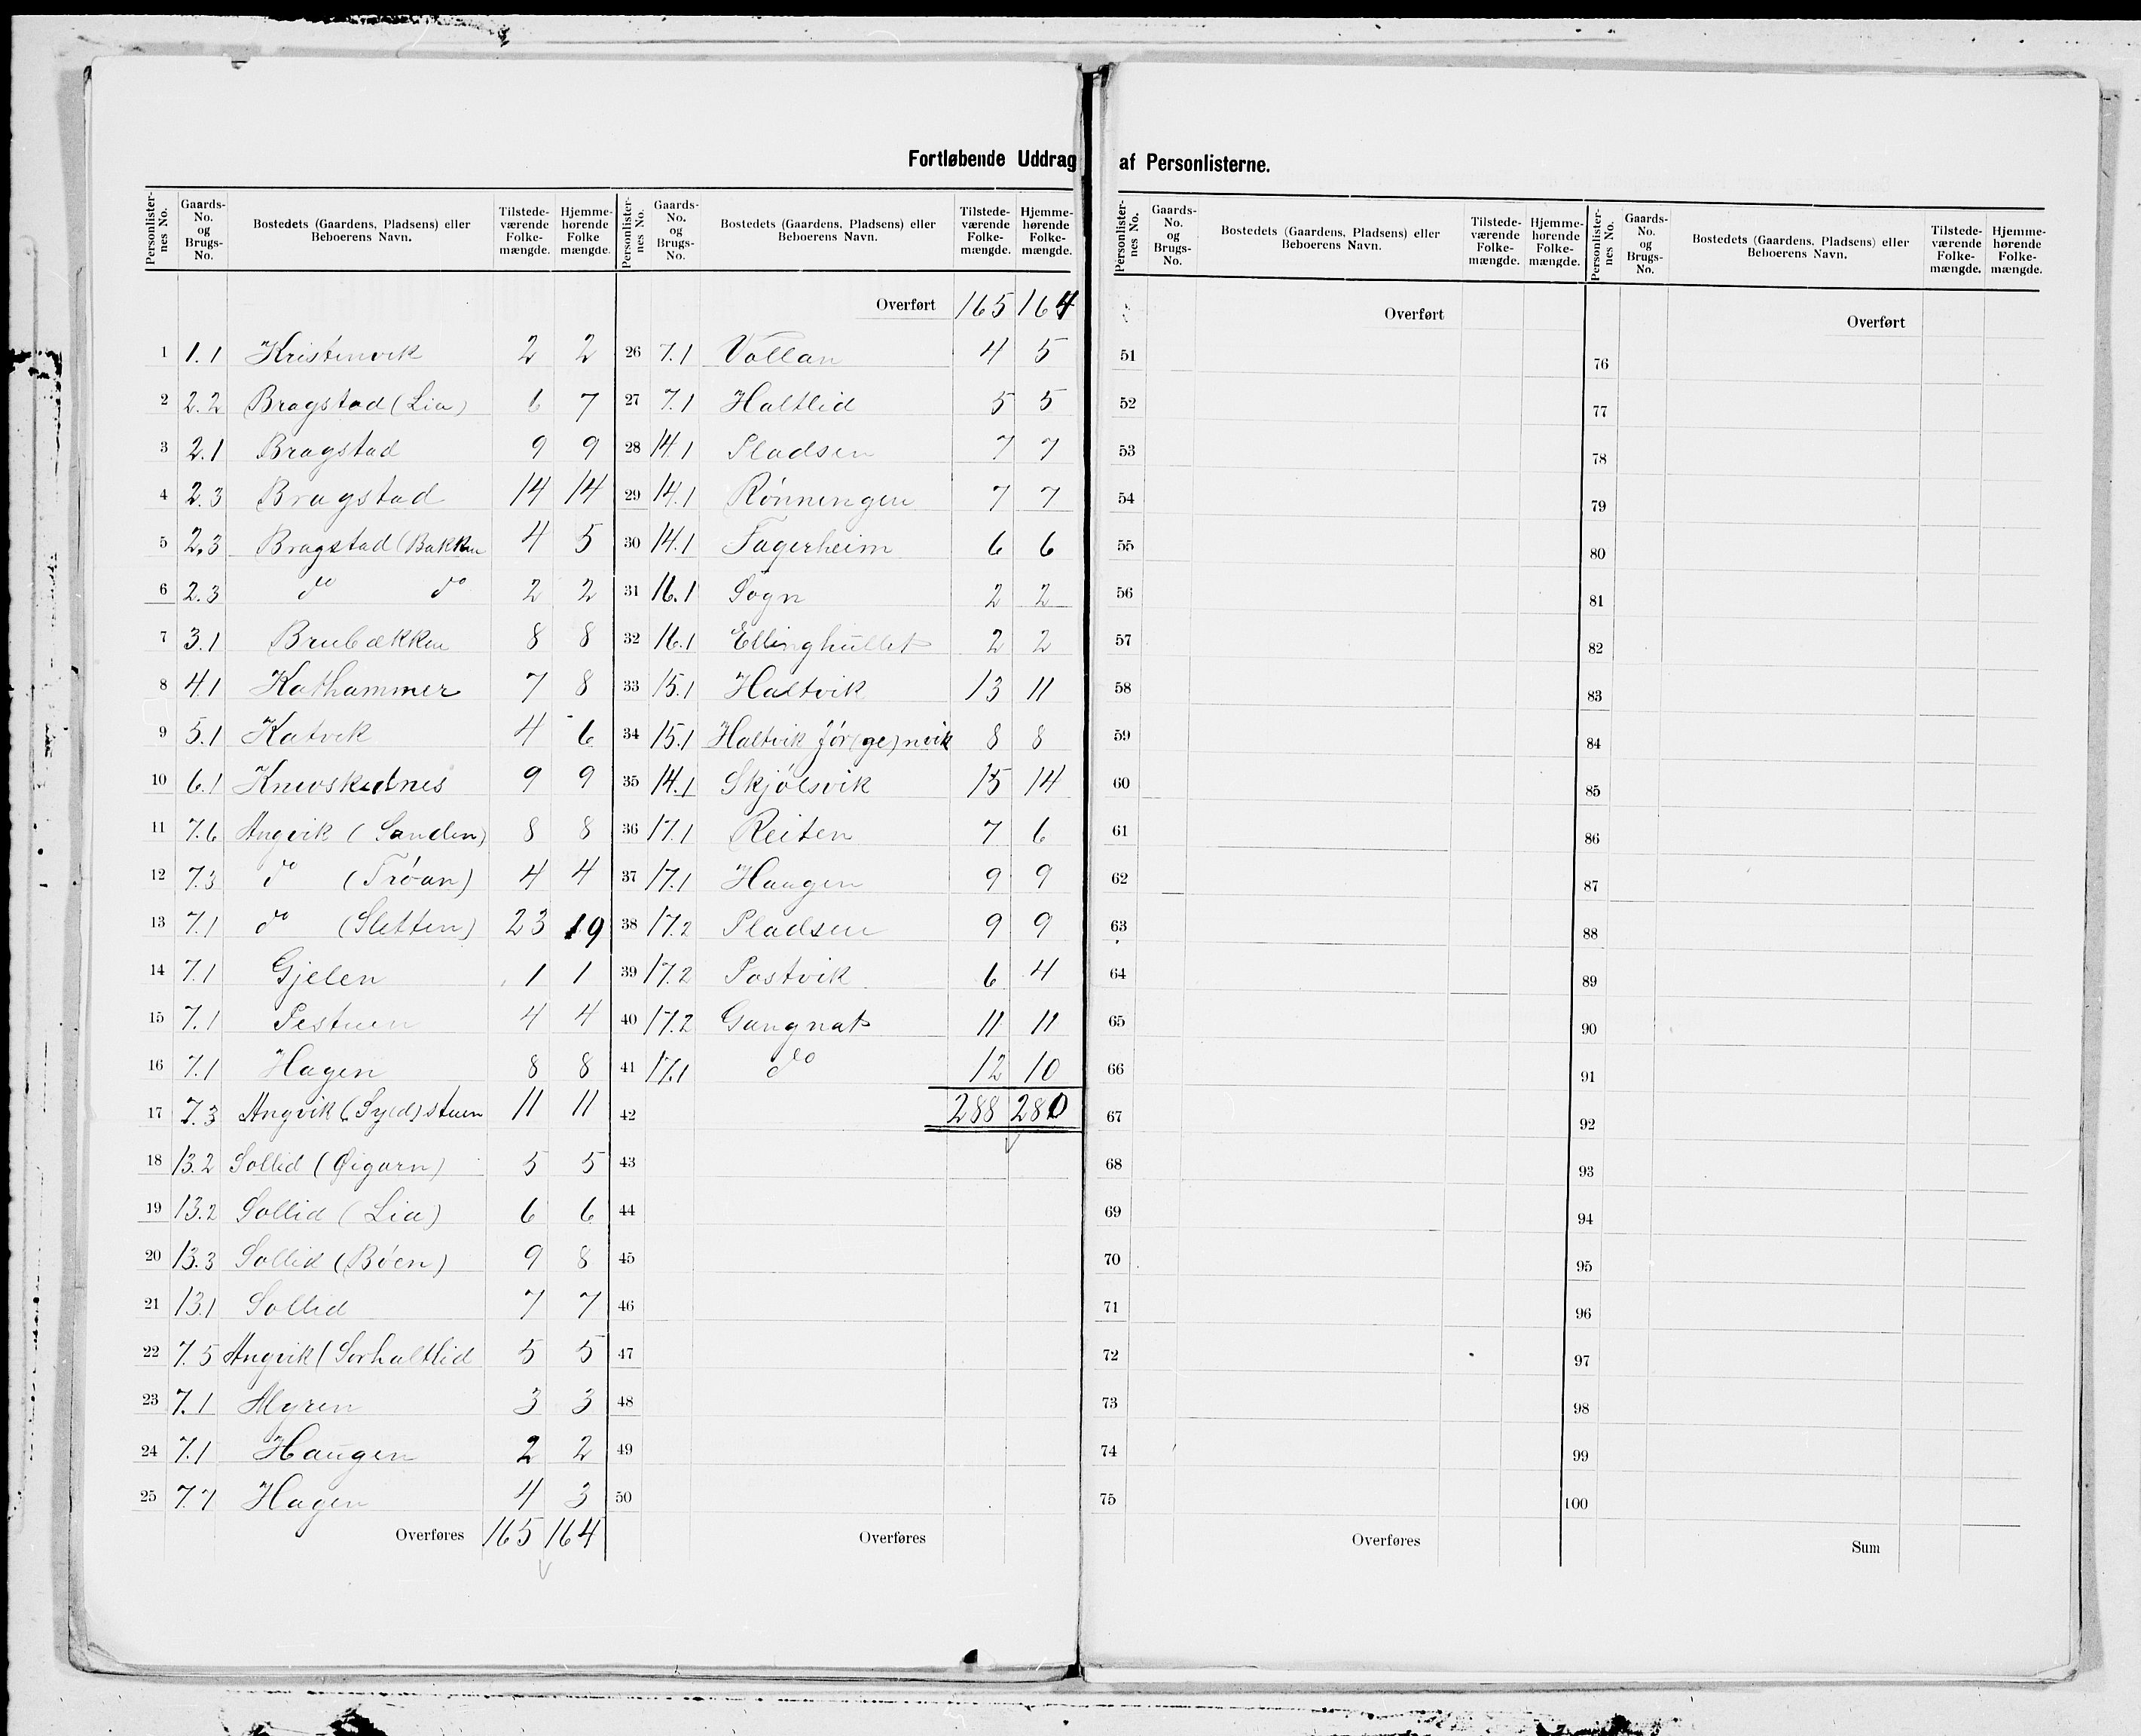 Fortløbende Uddrag af Personlisterne.
Personlister-nes No. Gaards-No. og Brugs-No. Bostedets (Gaardens, Pladsens) eller Beboerens Navn. Tilstede-værende Folke-mængde. Hjemme-hørende Folke mængde.
1 1.1 Kristenvik 2 2
2 2.2 Bragstad (Lia) 6 7
3 2.1 Bragstad 9 9
4 2.3 Bragstad 14 14
5 2.3 Bragstad (Bakken 4 5
6 2.3 do do 2 2
7 3.1 Brubækken 8 8
8 4.1 Kathammer 7 8
9 5.1 Katvik 4 6
10 6.1 9 9
11 7.6 Angvik (Sanden) 8 8
12 7.3 do (Trøan) 4 4
13 7.1 do (Sletten) 23 19
14 7.1 Gjelen 1 1
15 7.1 Pestuen 4 4
16 7.1 Hagen 8 8
17 7.3 Angvik (Sy(d)stuen 11 11
18 13.2 Sollid (Øigarn) 5 5
19 13.2 Sollid (Lia) 6 6
20 13.3 Sollid (Bøen) 9 8
21 13.1 Sollid 7 7
22 7.5 Angvik (Sørhaltlid 5 5
23 7.1 Myren 3 3
24 7.1 Haugen 2 2
25 7.7 Hagen 4 3
Overføres 165 164
Personlister-nes No. Gaards-No. og Brugs-No. Bostedets (Gaardens, Pladsens) eller Beboerens Navn. Tilstede-værende Folke-mængde. Hjemme-hørende Folke-mængde.
Overført 165 164
26 7.1 Vollan 4 5
27 7.1 Haltlid 5 5
28 14.1 Pladsen 7 7
29 14.1 Rønningen 7 7
30 14.1 Fagerheim 6 6
31 16.1 Sogn 2 2
32 16.1 Ellinghullet 2 2
33 15.1 Haltvik 13 11
34 15.1 Haltvik Jør(ge)nvik 8 8
35 14.1 Skjølsvik 15 14
36 17.1 Reiten 7 6
37 17.1 Haugen 9 9
38 17.2 Pladsen 9 9
39 17.2 Postvik 6 4
40 17.2 Gangnat 11 11
41 17.1 do 12 10
42 288 280
43
44
45
46
47
48
49
50
Overføres
Personlister-nes No. Gaards-No. og Brugs-No. Bostedets (Gaardens, Pladsens) eller Beboerens Navn. Tilstede-værende Folke-mængde. Hjemme-hørende Folke-mængde.
Overført
51
52
53
54
55
56
57
58
59
60
61
62
63
64
65
66
67
68
69
70
71
72
73
74
75
Overføres
Personlister-nes No. Gaards-No. og Brugs-No. Bostedets (Gaardens, Pladsens) eller Beboerens Navn. Tilstede-værende Folke-mængde. Hjemme-hørende Folke-mængde.
Overført
76
77
78
79
80
81
82
83
84
85
86
87
88
89
90
91
92
93
94
95
96
97
98
99
100
Sum